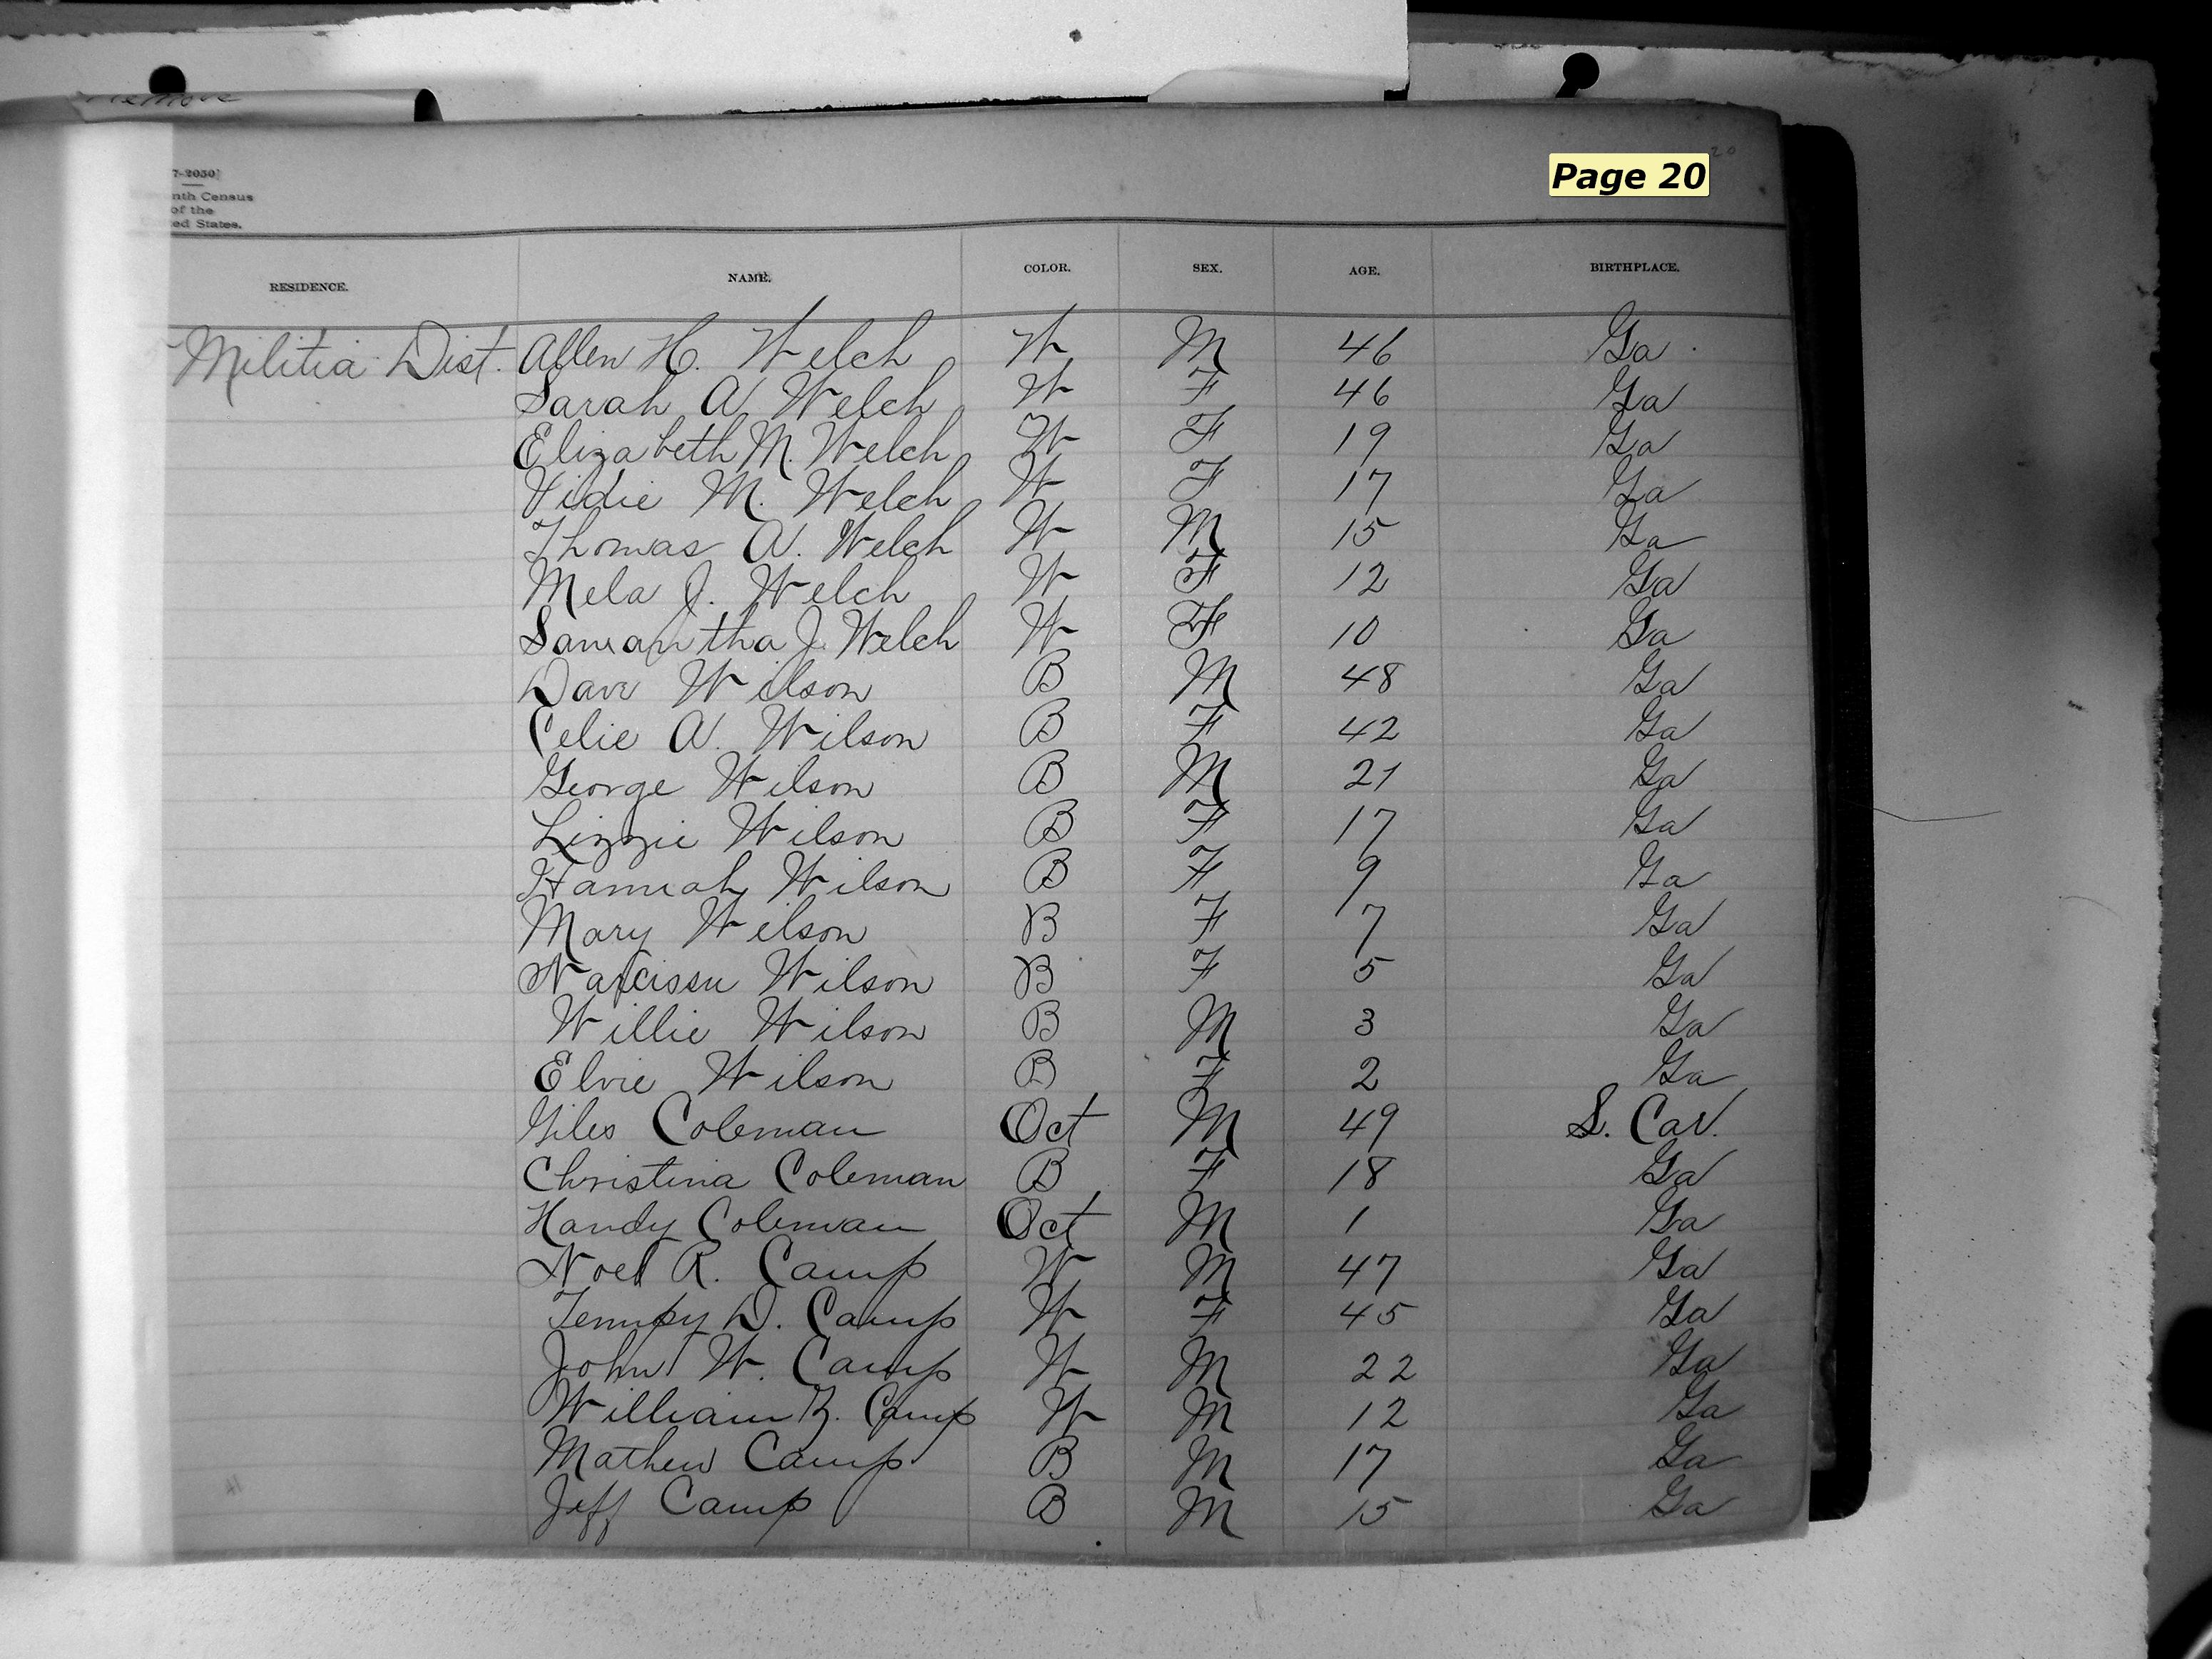 remove
20
Page 20
7-2050
nth Census
of the
ed States.
RESIDENCE. NAME. COLOR. SEX. AGE. BIRTHPLACE.
Militia Dist. Allen H. Welch W M 46 Ga
Sarah A Welch W F 46 Ga
Elizabeth M. Welch W F 19 Ga
Vidie M. Welch W F 17 Ga
Thomas A. Welch W M 15 Ga
Mela J. Welch W F 12 Ga
Samantha J. Welch W F 10 Ga
Dave Wilson B M 48 Ga
Celie A. Wilson B F 42 Ga
George Wilson B M 21 Ga
Lizzie Wilson B F 17 Ga
Hannah Wilson B F 9 Ga
Mary Wilson B F 7 Ga
Narcissu Wilson B F 5 Ga
Willie Wilson B M 3 Ga
Elvie Wilson B F 2 Ga
Giles Coleman Oct M 49 S. Car.
Christina Coleman B F 18 Ga
Handy Coleman Oct M 1 Ga
Noel R. Camp W M 47 Ga
Tempy D. Camp W F 45 Ga
John W. Camp W M 22 Ga
William R. Camp W M 12 Ga
Mathew Camp B M 17 Ga
Jeff Camp B M 15 Ga